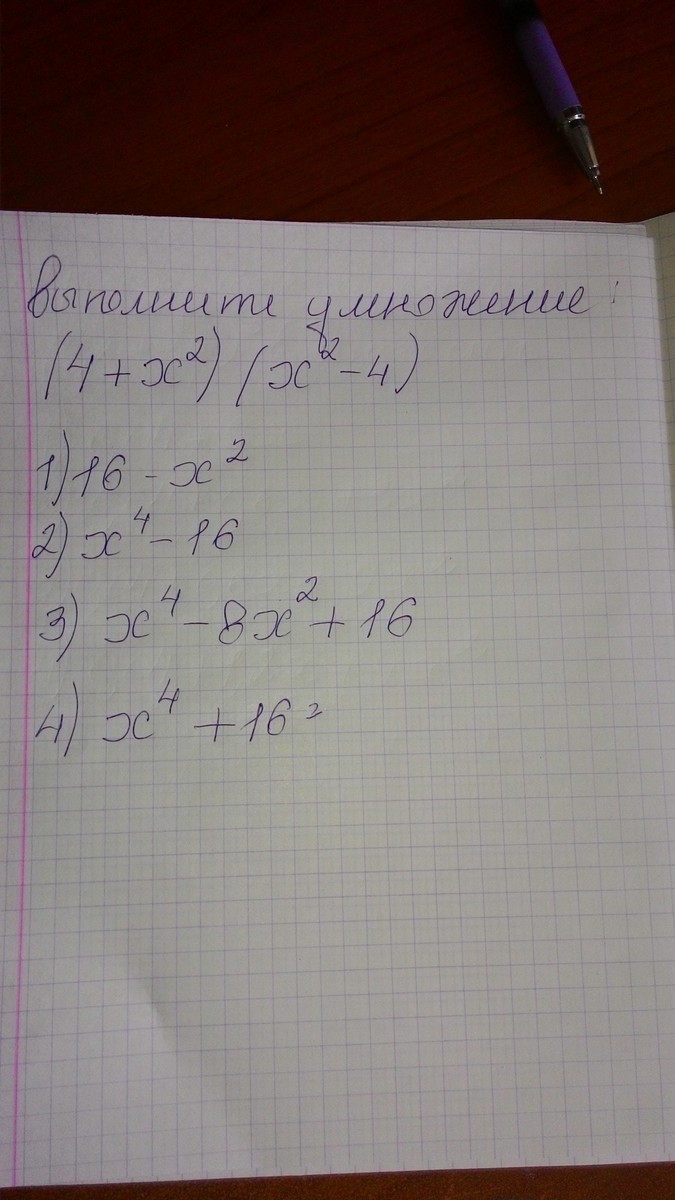 Выполните умножение:
(4+x²) (x²-4)
1) 16 - x²
2) x⁴ - 16
3) x⁴ - 8x² + 16
4) x⁴ + 16